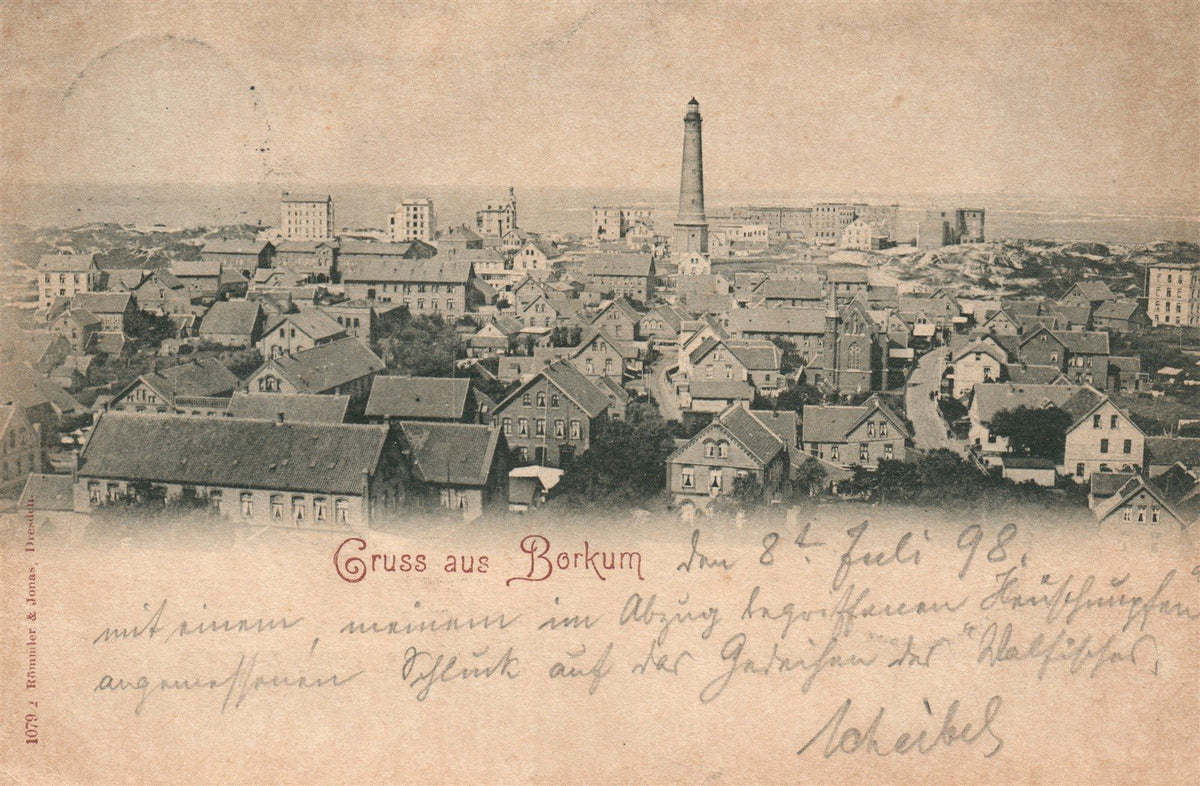 Gruss aus Borkum den 8t. Juli 98.
mit einem, meinem im Abzug begriffenen Heuschnupfen
angemessenen Schluck auf das Gedeihen des "Walfisches".
Scheibel
1079 z Römmler & Jonas, Dresden.